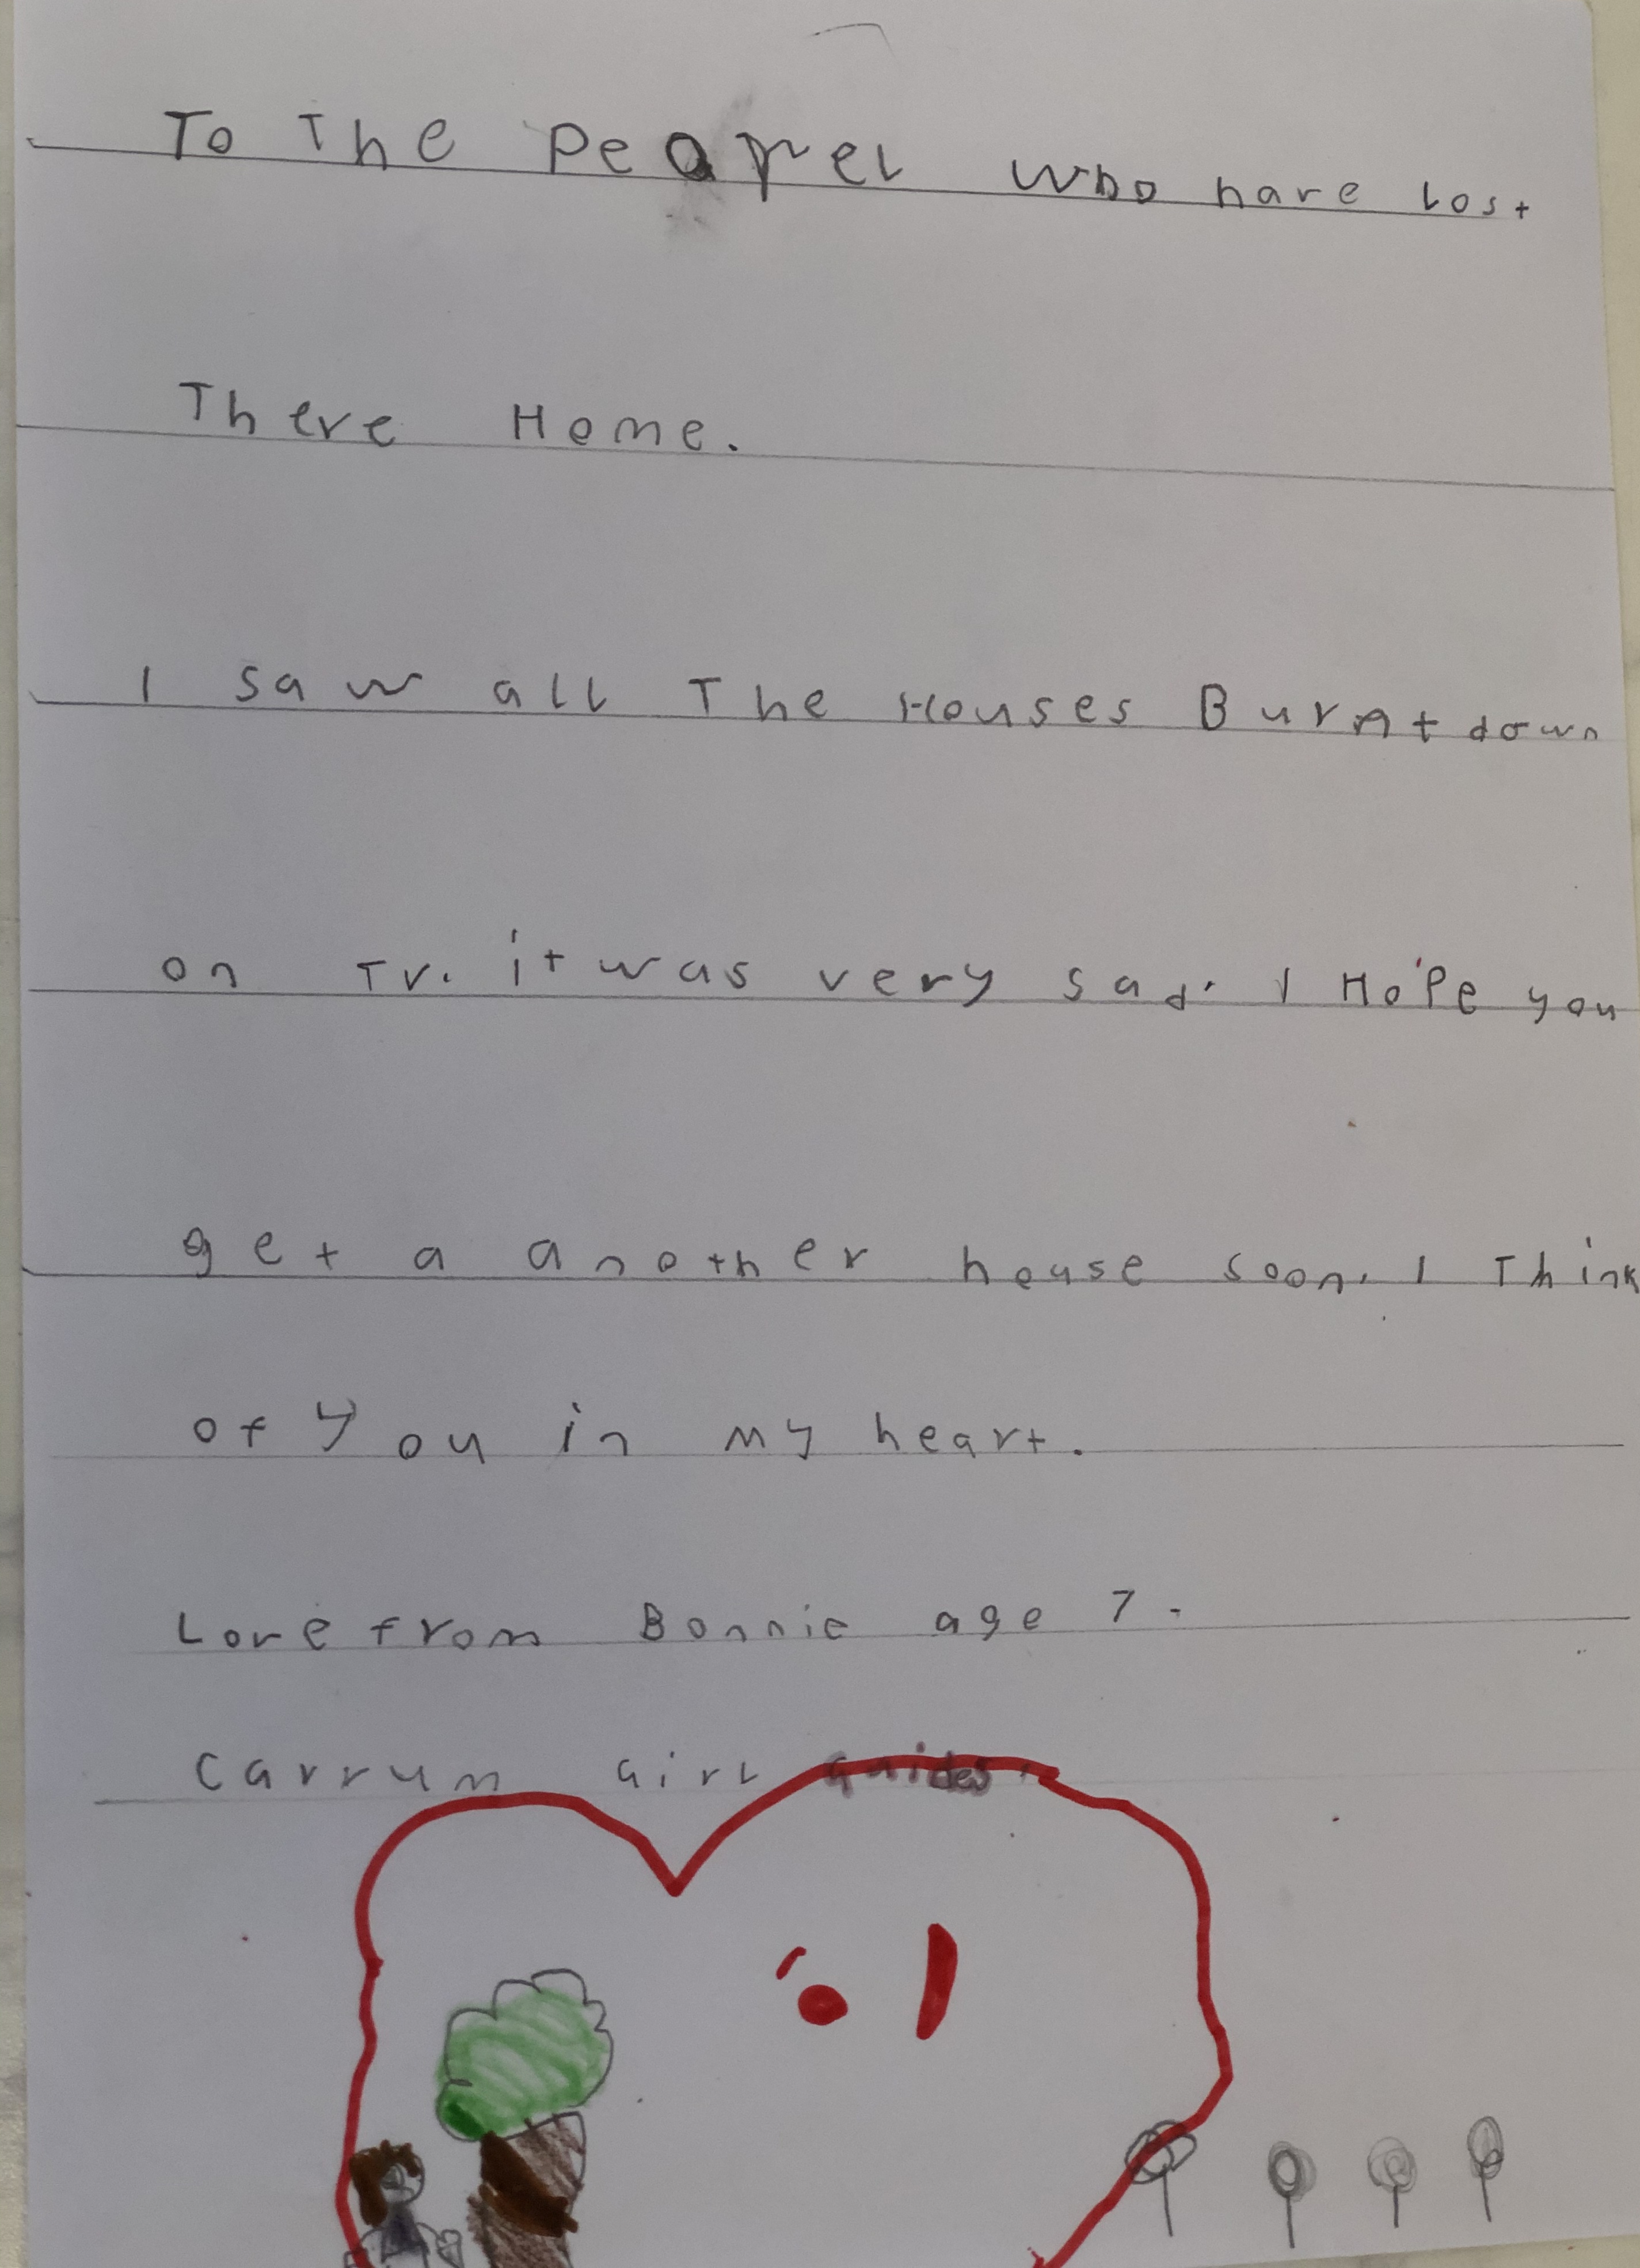 To The Peapel who have lost
There Home.
I saw all The Houses Burnt down
on TV. it was very sad. I HoPe you
get a another house soon. I Think
of you in my heart.
Love from Bonnie age 7.
Carrum Girl Guides.